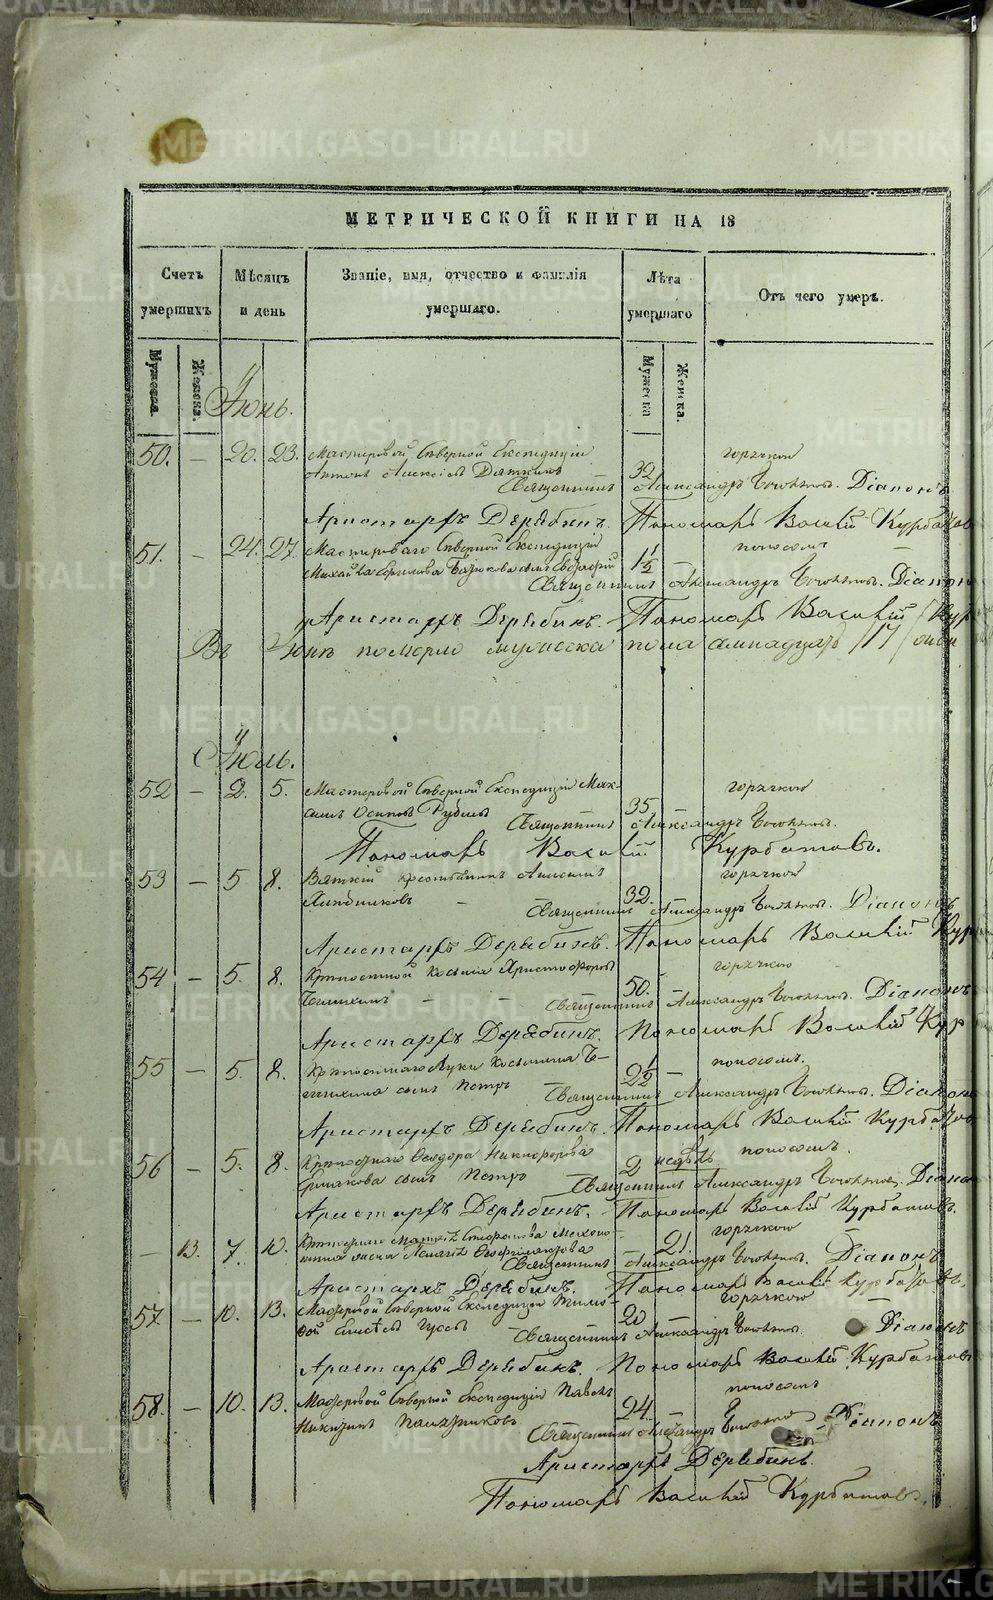 METRIKI.GASO-URAL.RU
МЕТРИЧЕСКОЙ КНИГИ НА 18
Счетъ умершихъ
Мѣсяцъ и день
Званіе, имя, отчество и фамилія умершаго.
Лѣта умершаго
Отъ чего умеръ.
Мужеска. Женска. Мужеска Женска.
Іюнь.
50. — 20. 23. Мастеровой Сѣверной Експедиціи горячкой
Антонъ Алексѣевъ 32
Священникъ Александръ Діаконъ
Аристархъ Дерябинъ. Пономарь Василій Курбатов
51. — 24. 27. Мастероваго Сѣверной Експедиціи поносомъ
Михайла сынъ 1½
Священникъ Александръ Діаконъ
Аристархъ Дерябинъ. Пономарь Василій Кур
Въ Іюнѣ померло мужеска пола /17/
Іюль.
52 — 2. 5. Мастеровой Сѣверной Експедиціи Мак- горячкой
симъ Осиповъ 35.
Священникъ Александръ
Пономарь Василій Курбатовъ.
53 — 5 8. Вятскій крестьянинъ горячкой
32.
Священникъ Александръ Діаконъ
Аристархъ Дерябинъ. Пономарь Василій Кур
54 — 5. 8. Крѣпостной Косьма Христофоровъ горячкою
50.
Священникъ Александръ Діаконъ
Аристархъ Дерябинъ. Пономарь Василій Кур
55 — 5. 8. Крѣпостнаго Луки Косьмина поносомъ.
сынъ Петръ 2½
Священникъ Александръ Діаконъ
Аристархъ Дерябинъ. Пономарь Василій Курбатов
56 — 5. 8. Крѣпостнаго Ѳеодора Никифорова 2 недѣль поносомъ.
Ермакова сынъ Петръ Священникъ Александръ Діакон
Аристархъ Дерябинъ. Пономарь Василій Курбатовъ.
— 13. 7. 10. Крѣпостнаго 21. горячкою
Священникъ Александръ Діаконъ
Аристархъ Дерябинъ. Пономарь Василій Курбатовъ.
57 — 10. 13. Мастеровой Сѣверной Експедиціи 20 горячкою
Священникъ Александръ Діаконъ
Аристархъ Дерябинъ. Пономарь Василій Курбатовъ
58. — 10. 13. Мастеровой Сѣверной Експедиціи Павелъ 24. поносомъ
Никитинъ
Священникъ Александръ Діаконъ
Аристархъ Дерябинъ.
Пономарь Василій Курбатовъ.